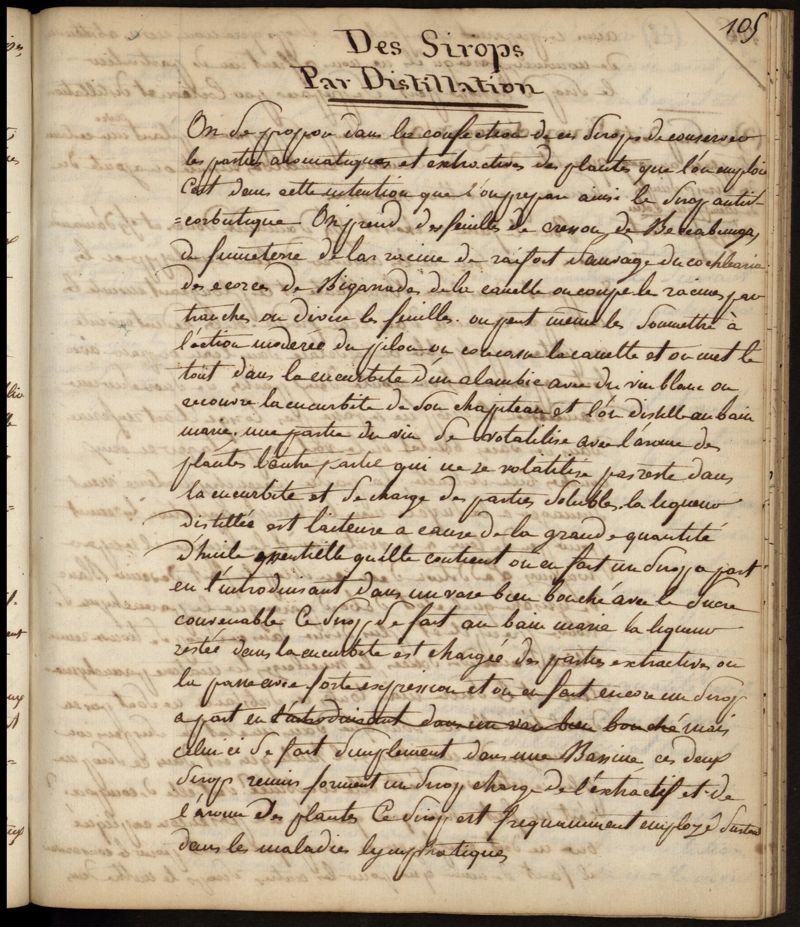 105
Des Sirops
Par Distillation
On se propose dans la confection de ces Sirops de conserver
les parties aromatiques et extractives des plantes que l'on emploie
C'est dans cette intention que l'on prepare ainsi le Sirop antis-
=corbutique On prend des feuilles de cresson, de Beccabunga,
de fumeterre de la racine de raifort sauvage du cochlearia
des ecorces de Bigarrades de la canelle on coupe le racines par
tranches on divise les feuilles. on peut même les Soumettre à
l'action moderée du pilon on concasse la canelle et on met le
tout dans la cucurbite d'un alambic avec du vin blanc on
recouvre la cucurbite de son chapiteau et l'on distille au bain
marie, une partie du vin Se volatilise avec l'arome des
plantes l'autre partie qui ne se volatilise pas reste dans
la cucurbite et Se charge des parties Solubles. la liqueur
distillée est laiteuse a cause de la grande quantité
d'huile essentielle qu'elle contient on en fait un Sirop a part
en l'introduisant dans un vase bien bouché avec le Sucre
convenable Ce Sirop Se fait au bain marie la liqueur
restée dans la cucurbite est chargée des parties extractives on
la passe avec forte expression et on en fait encore un Sirop
a part en l'introduisant dans un vase bien bouché mais
celui ci Se fait Simplement dans une Bassine ces deux
Sirop reunis forment un Sirop chargé de l'extractif et de
l'arome des plantes Ce Sirop est frequemment employé Surtout
dans les maladies lymphatiques